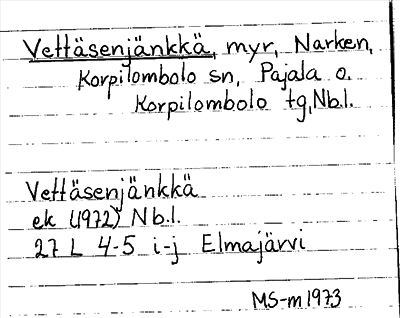 Vettäsenjänkkä, myr, Narken,
Korpilombolo sn, Pajala o.
Korpilombolo tg, Nb.l.
Vettäsenjänkkä
ek (1972) Nb.l.
27 L 4-5 i-j Elmajärvi
MS-m 1973